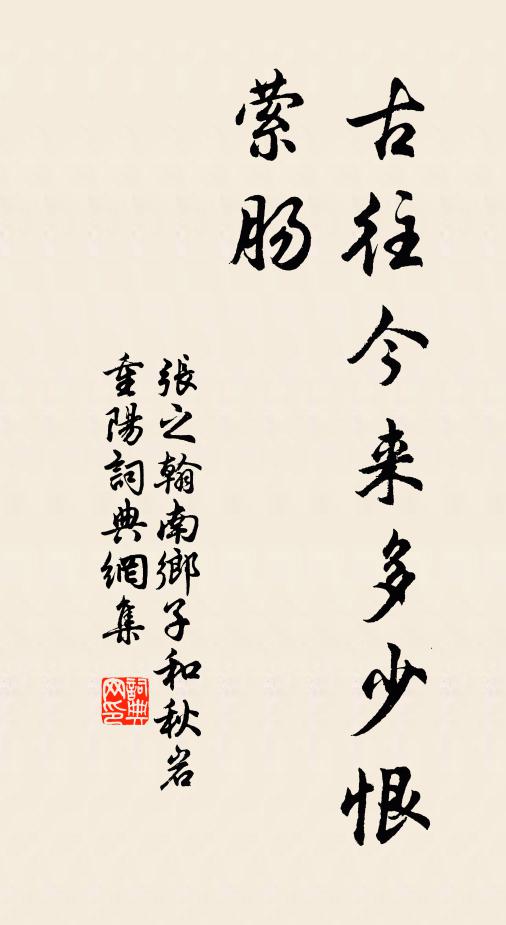 古往今来多少恨
萦肠
張之翰南鄉子和秋岩
重陽詞典網集
詞典
网印